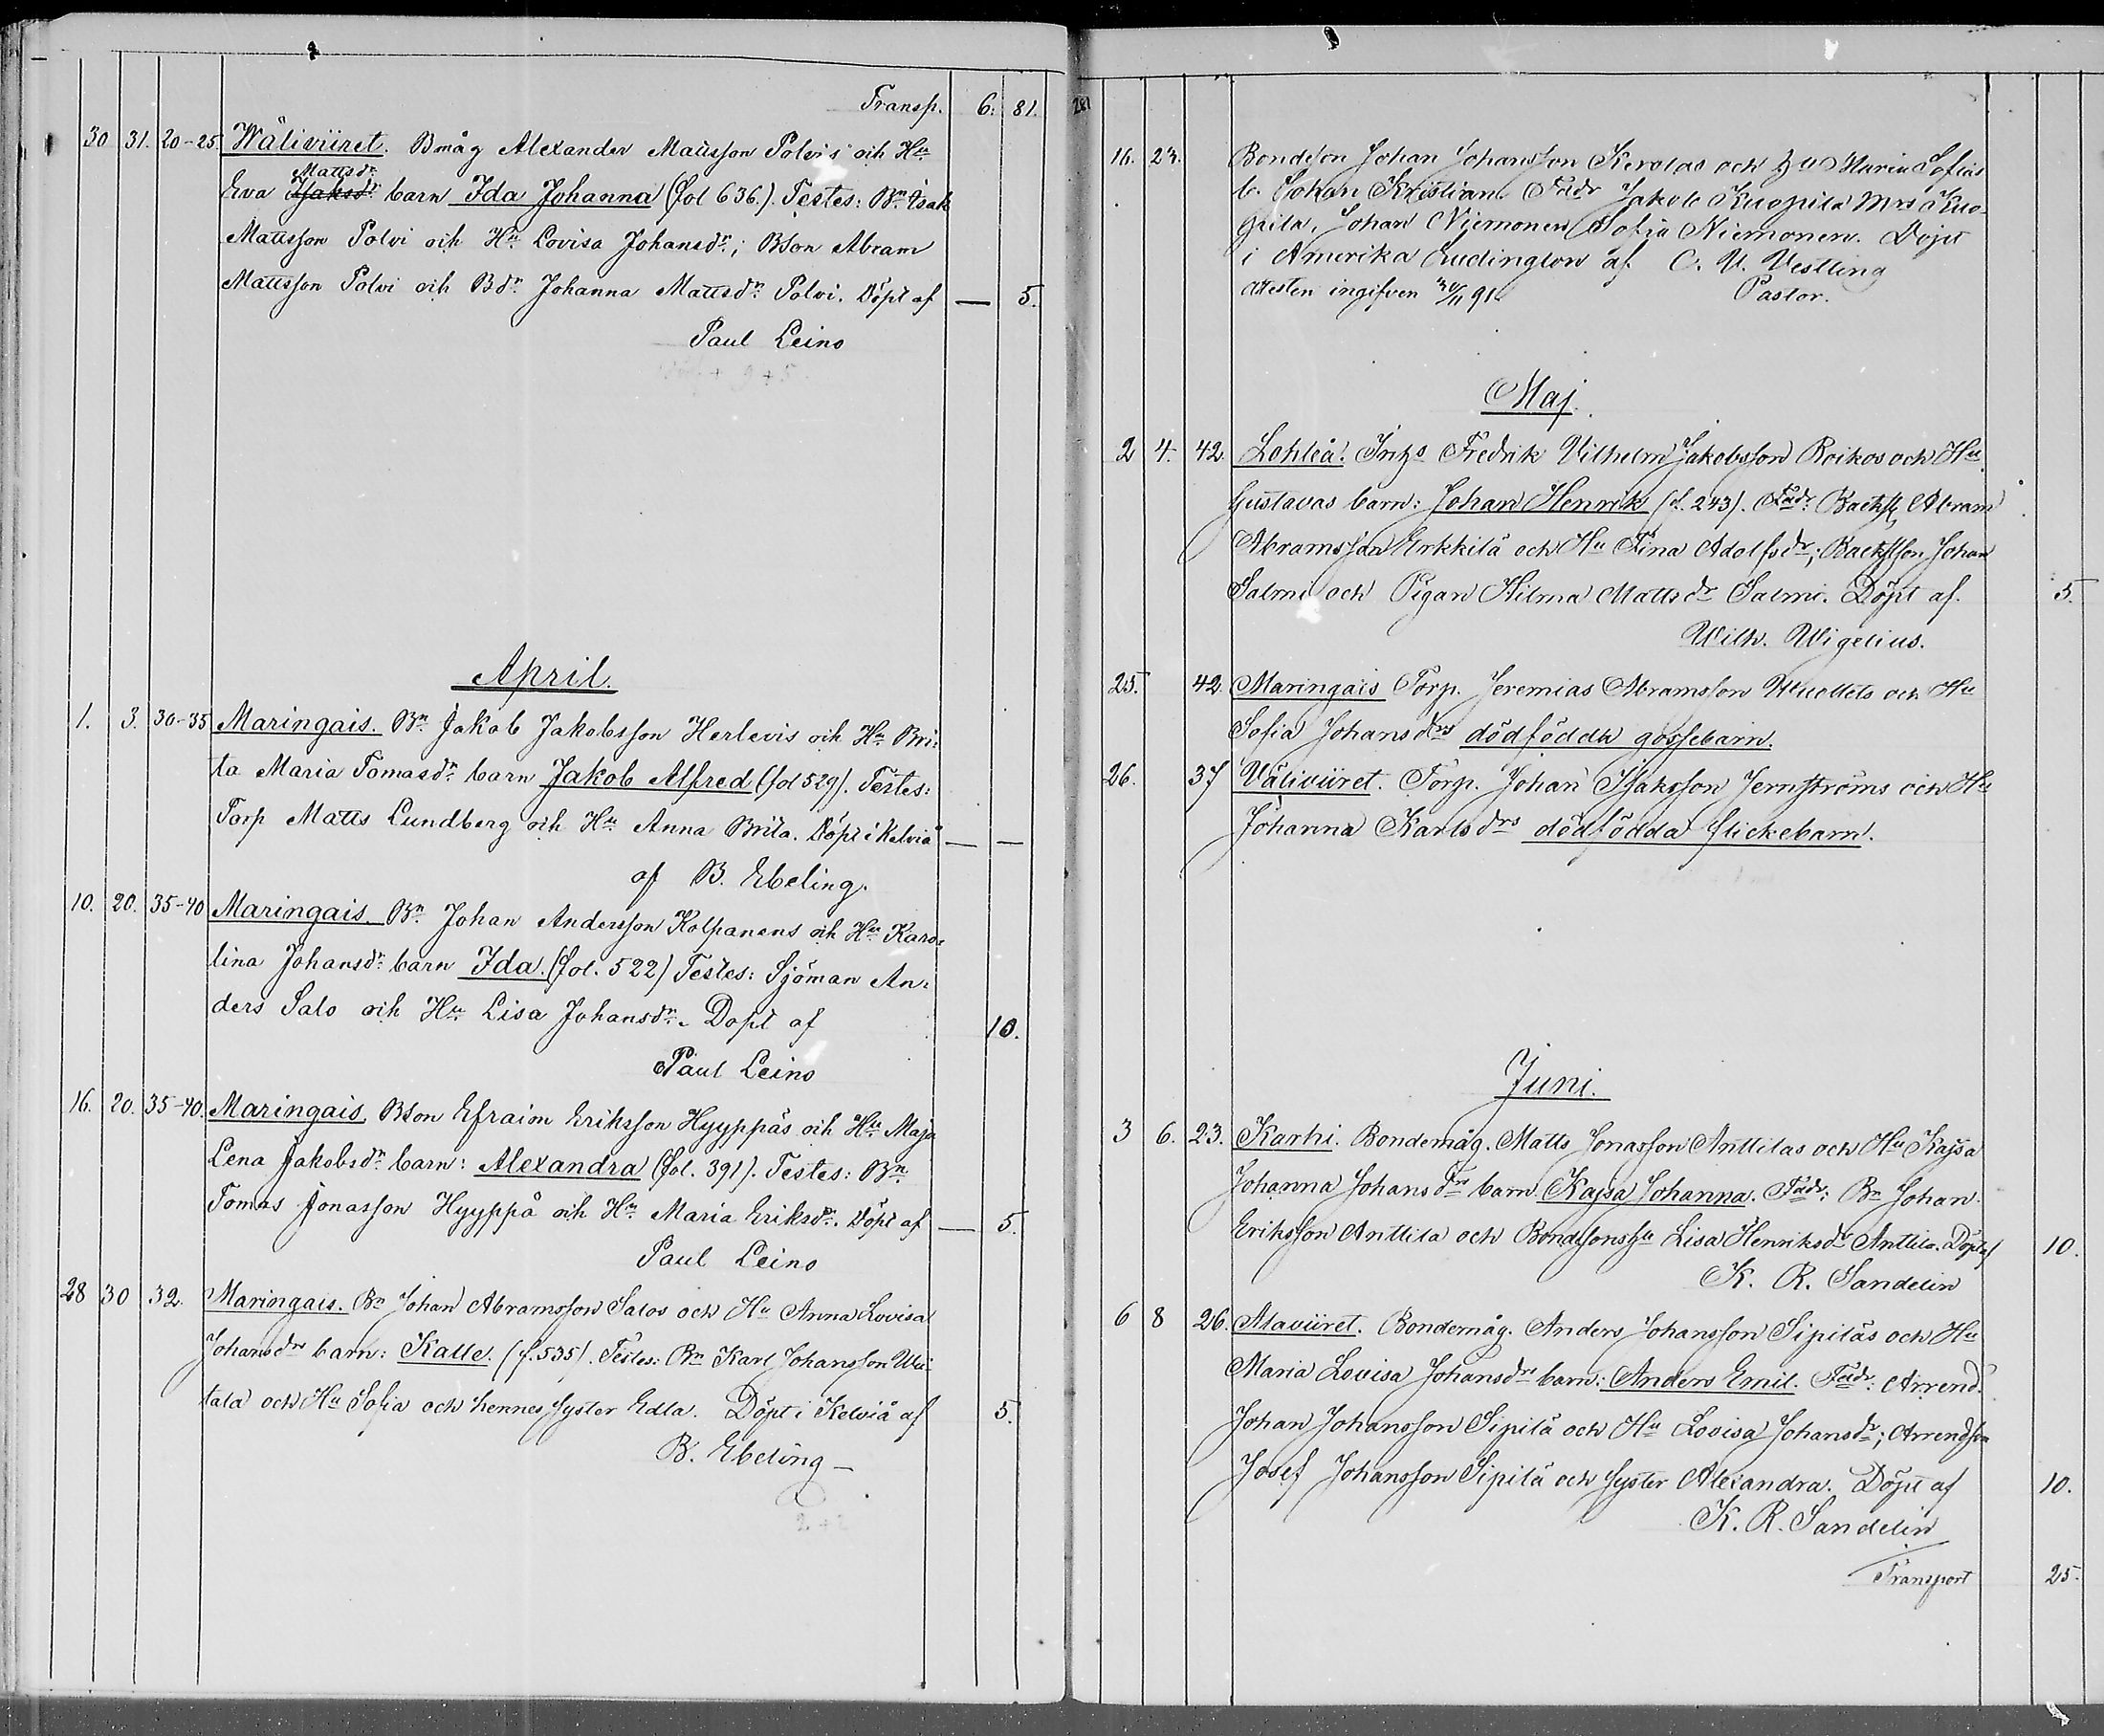 Transp. 6. 81.
30 31. 20-25. Wäliviiret. Bmåg Alexander Mattsson Polvis och Hu
Mattsdr
Eva Isaksdr barn Ida Johanna (fol 636.). Testes: Bn. Isak
Mattsson Polvi och Hu. Lovisa Johansdr.; Bson Abram
Mattsson Polvi och Bdr. Johanna Mattsdr. Polvi. Döpt af — 5.
Paul Leino
April.
1. 3. 30-35 Maringais. Bn. Jakob Jakobsson Herlevis och Hu. Bri-
ta Maria Tomasdr. barn Jakob Alfred (fol 529). Testes:
Torp Matts Lundberg och Hu. Anna Brita. Döpt i Kelviå — —
af B. Ebeling.
10. 20. 35-40 Maringais. Bn. Johan Andersson Kolpanens och Hu. Karo-
lina Johansdr. barn Ida. (fol. 522) Testes: Sjöman An-
ders Salo och Hu. Lisa Johansdr. Döpt af 10.
Paul Leino
16. 20. 35-40. Maringais. Bson Efraim Eriksson Hyyppäs och Hu. Maja
Lena Jakobsdr. barn: Alexandra (fol. 391). Testes: Bn.
Tomas Jonasson Hyyppä och Hu. Maria Eriksdr. Döpt af — 5.
Paul Leino
28 30 32. Maringais. Bn Johan Abramsson Salos och Hu Anna Lovisa
Johansdrs barn: Kalle. (f. 535). Testes: Bn Karl Johansson Uusi-
tala och Hu Sofia och hennes syster Edla. Döpt i Kelviå af 5.
B. Ebeling —
281
16. 23. Bondson Johan Johansson Kerolas och Hu Maria Sofias
b. Johan Kristian. Fadr Jakob Kuopila Mrs Kuo-
pila, Johan Niemonen Sofia Niemonen. Döpt
i Amerika Ludington af C. U. Vestling
attesten ingifven 30/11 91. Pastor.
Maj.
2 4. 42. Lohteå. Inhs Fredrik Vilhelm Jakobsson Roikos och Hu
Gustavas barn: Johan Henrik (f. 243). Fadr: Backst. Abram
Abramsson Erkkilä och Hu Fina Adolfsdr; Backstson Johan
Salmi och Pigan Hilma Mattsdr Salmi. Döpt af. 5.
Wilh. Wigelius.
25. 42. Maringais Torp. Jeremias Abramsson och Hu
Sofia Johansdrs dödfödda gossebarn.
26. 37 Väliviiret. Torp. Johan Isaksson Jernströms och Hu
Johanna Karlsdrs dödfödda flickebarn.
Juni.
3 6. 23. Karhi. Bondemåg. Matts Jonasson Anttilas och Hu Kajsa
Johanna Johansdrs barn Kajsa Johanna. Fadr: Bn Johan
Eriksson Anttila och Bondsonshu Lisa Henriksdr Anttila. Döpt af 10.
K. R. Sandelin
6 8 26. Alaviiret. Bondemåg. Anders Johansson Sipiläs och Hu
Maria Lovisa Johansdrs barn: Anders Emil. Fadr: Arrend.
Johan Johansson Sipilä och Hu Lovisa Johansdr; Arrendson
Josef Johansson Sipilä och syster Alexandra. Döpt af 10.
K. R. Sandelin
Transport 25.